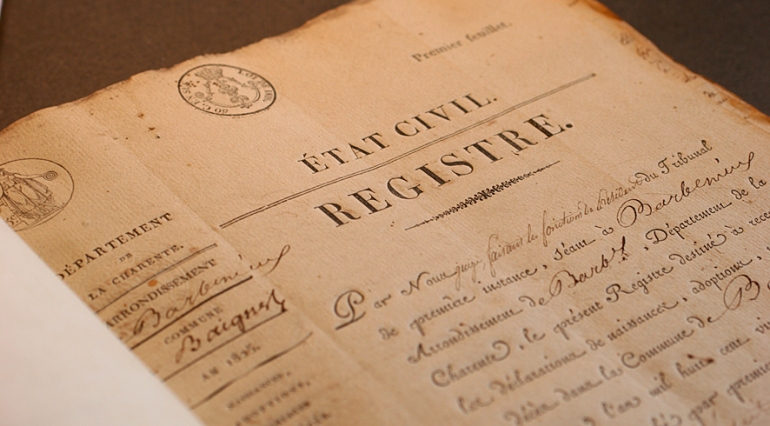 Premier feuillet.
ÉTAT CIVIL.
REGISTRE.
DÉPARTEMENT
DE
LA CHARENTE.
ARRONDISSEMENT
Barbezieux
COMMUNE
Baignes
AN
Par Nous juge, faisant les fonctions de Président du Tribunal
de première instance, séant à Barbezieux
Arrondissement de Barb.x, Département de la
Charente, le présent Registre destiné à
les déclarations de naissance, adoptions,
décès dans la Commune de
de l'an mil huit cent
par premier